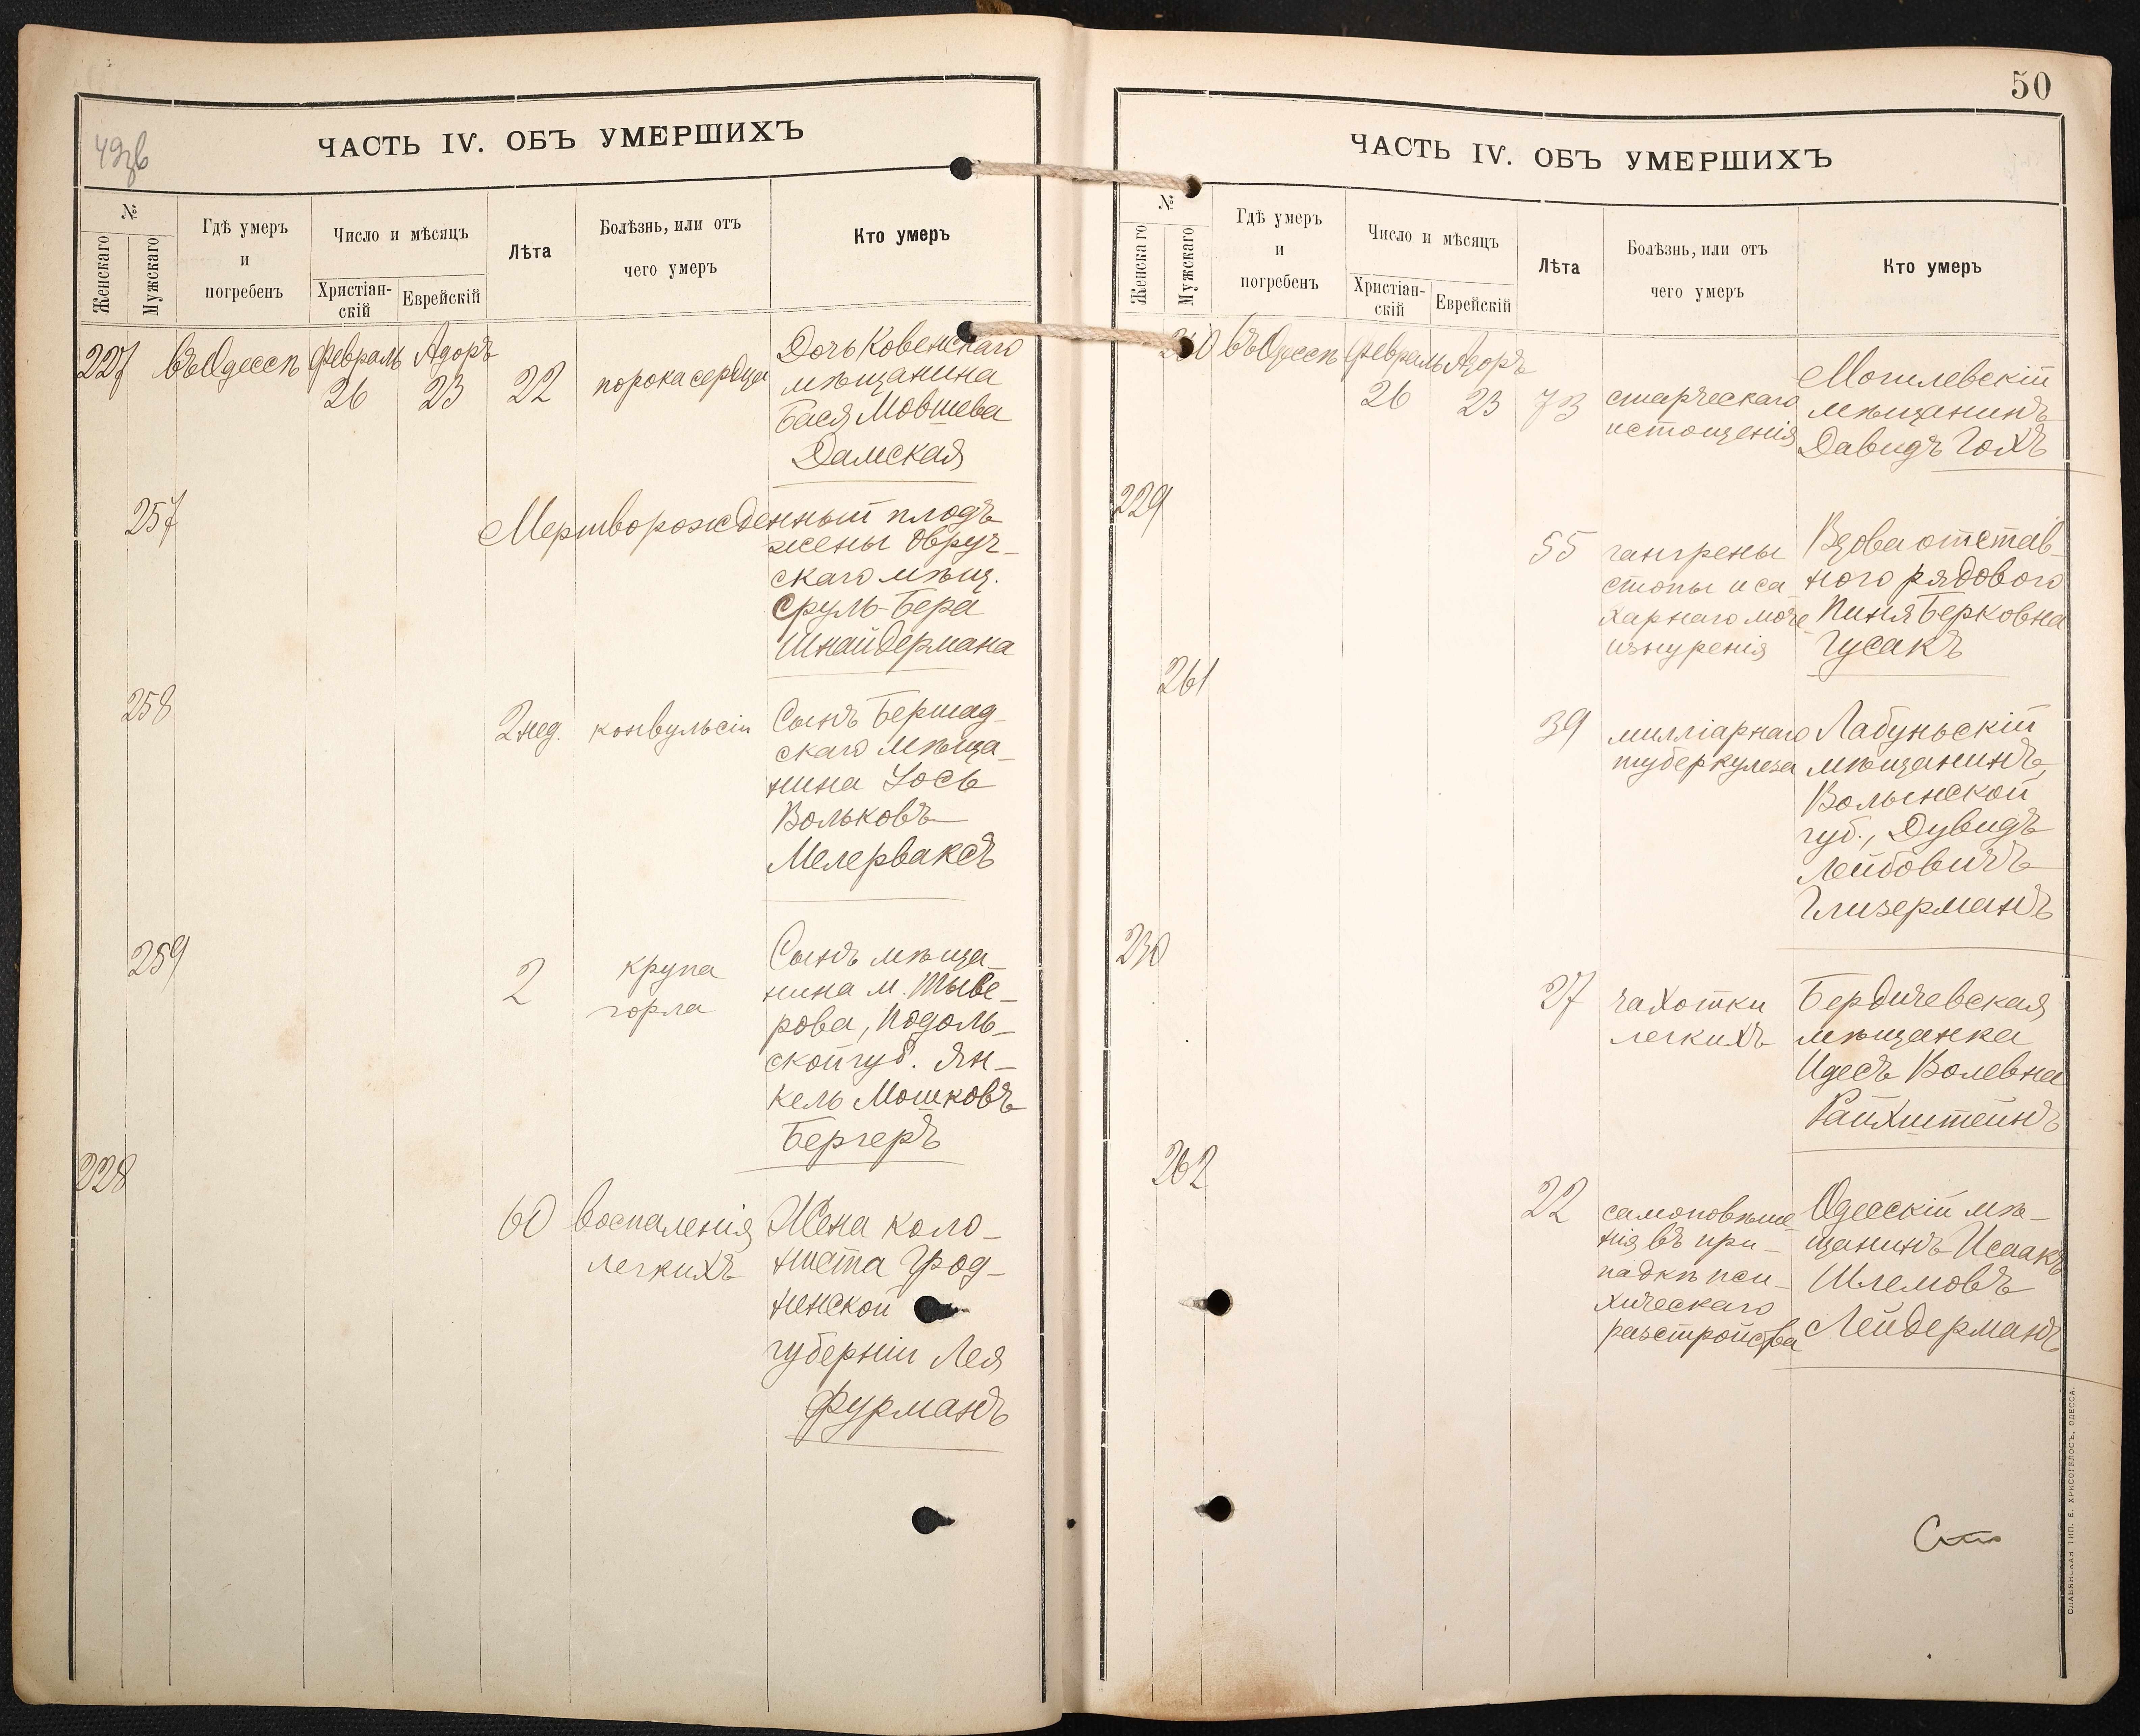 ЧАСТЬ IV. ОБЪ УМЕРШИХЪ
№
Женскаго
Мужскаго
Гдѣ умеръ
и
погребенъ
Число и мѣсяцъ
Христіан-
скій
Еврейскій
Лѣта
Болѣзнь, или отъ
чего умеръ
Кто умеръ
227
въ Одессѣ
Февраль
26
Адоръ
23
22
порока сердца
Дочь Ковенскаго
мѣщанина
Бася Мовшева
Дамская
257
Мертворожденный плодъ
жены Овруч-
скаго мѣщ.
Сруль-Бера
Шнайдермана
258
2 нед.
конвульсіи
Сынъ Бершад-
скаго мѣща-
нина Іось
Вольковъ
Мелерваксъ
259
2
крупа
горла
Сынъ мѣща-
нина м. Тыве-
рова, Подоль-
ской губ. Ян-
кель Мошковъ
Бергеръ
228
60
воспаленія
легкихъ
Жена коло-
ниста Грод-
ненской
губерніи Лея
Фурманъ
50
ЧАСТЬ IV. ОБЪ УМЕРШИХЪ
№
Женскаго
Мужскаго
Гдѣ умеръ
и
погребенъ
Число и мѣсяцъ
Христіан-
скій
Еврейскій
Лѣта
Болѣзнь, или отъ
чего умеръ
Кто умеръ
260
въ Одессѣ
Февраль
26
Адоръ
23
73
старческаго
истощенія
Могилевскій
мѣщанинъ
Давидъ Гохъ
229
55
гангрены
стопы и са-
харнаго моче
изнуренія
Вдова отстав-
ного рядового
Пиня Берковна
Гусакъ
261
39
милліарнаго
туберкулеза
Лабуньскій
мѣщанинъ,
Волынской
губ., Дувидъ
Лейбовичъ
Глизерманъ
230
27
чахотки
легкихъ
Бердичевская
мѣщанка
Идесъ Волевна
Райхштейнъ
262
22
самоповѣше-
нія въ при-
падкѣ пси-
хическаго
разстройства
Одесскій мѣ-
щанинъ Исаакъ
Шлемовъ
Лейдерманъ
СЛАВЯНСКАЯ ТИП. Е. ХРИСОГЕЛОСЪ, ОДЕССА.